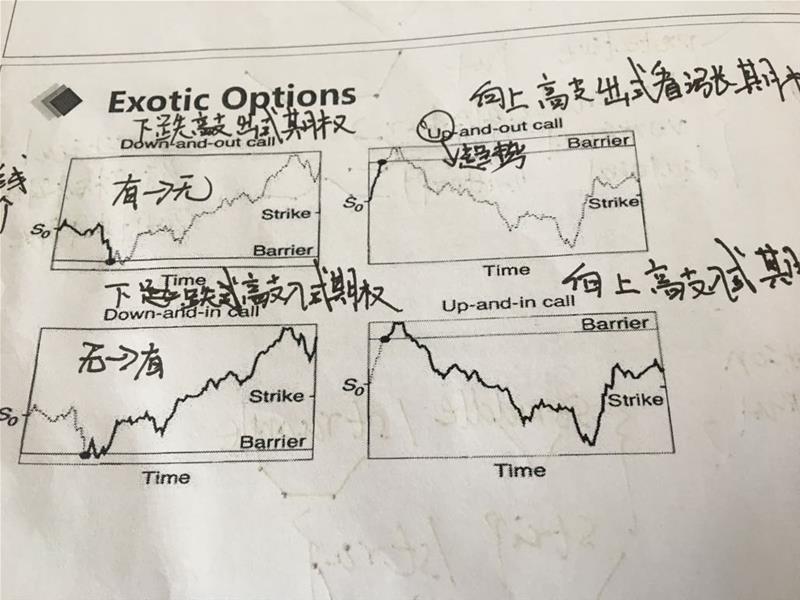 Exotic Options
向上高支出式看涨期
下跌高支出式期权
Down-and-out call
有→无
S0
Strike
Barrier
Time
Up-and-out call
趋势
Barrier
S0
Strike
Time
下跌式高支入式期权
Down-and-in call
无→有
S0
Strike
Barrier
Time
向上高支入式期
Up-and-in call
Barrier
S0
Strike
Time